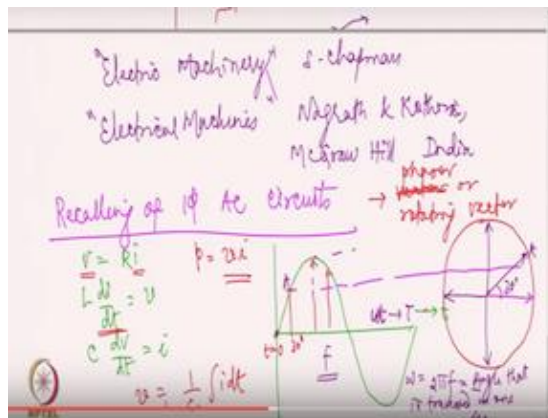 "Electric Machinery" S-Chapman
"Electrical Machines" Nagrath & Kothari,
McGraw Hill India
Recalling of 1φ AC Circuits
→ phasor or
rotating vector
v = Ri
p = vi
L di/dt = v
C dv/dt = i
v = 1/C ∫ i dt
i
A
A
t=0 30°
30°
ωt → T → t
f
ω = 2πf = Angle that
is tracked in one
NPTEL